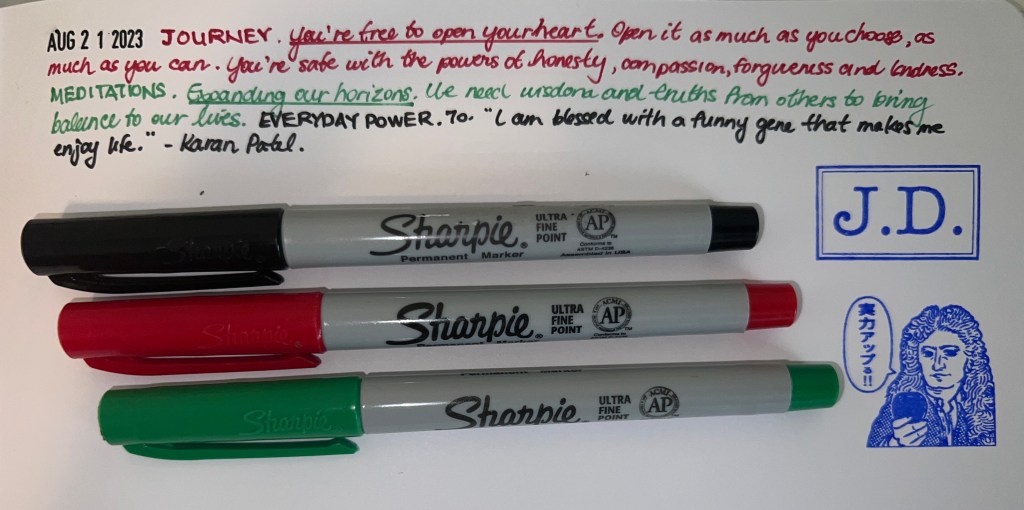 AUG 21 2023 JOURNEY. You're free to open your heart. Open it as much as you choose, as
much as you can. You're safe with the powers of honesty, compassion, forgiveness and kindness.
MEDITATIONS. Expanding our horizons. We need wisdom and truths from others to bring
balance to our lives. EVERYDAY POWER. 70. "I am blessed with a funny gene that makes me
enjoy life." - Karan Patel.
J.D.
Sharpie®
Permanent Marker
ULTRA
FINE
POINT
ACMI
AP
Conforms to
ASTM D-4236
Assembled in USA
Sharpie®
ULTRA
FINE
POINT
ACMI
AP
Conforms to
Sharpie
ULTRA
FINE
POINT
ACMI
AP
実力アップる!!